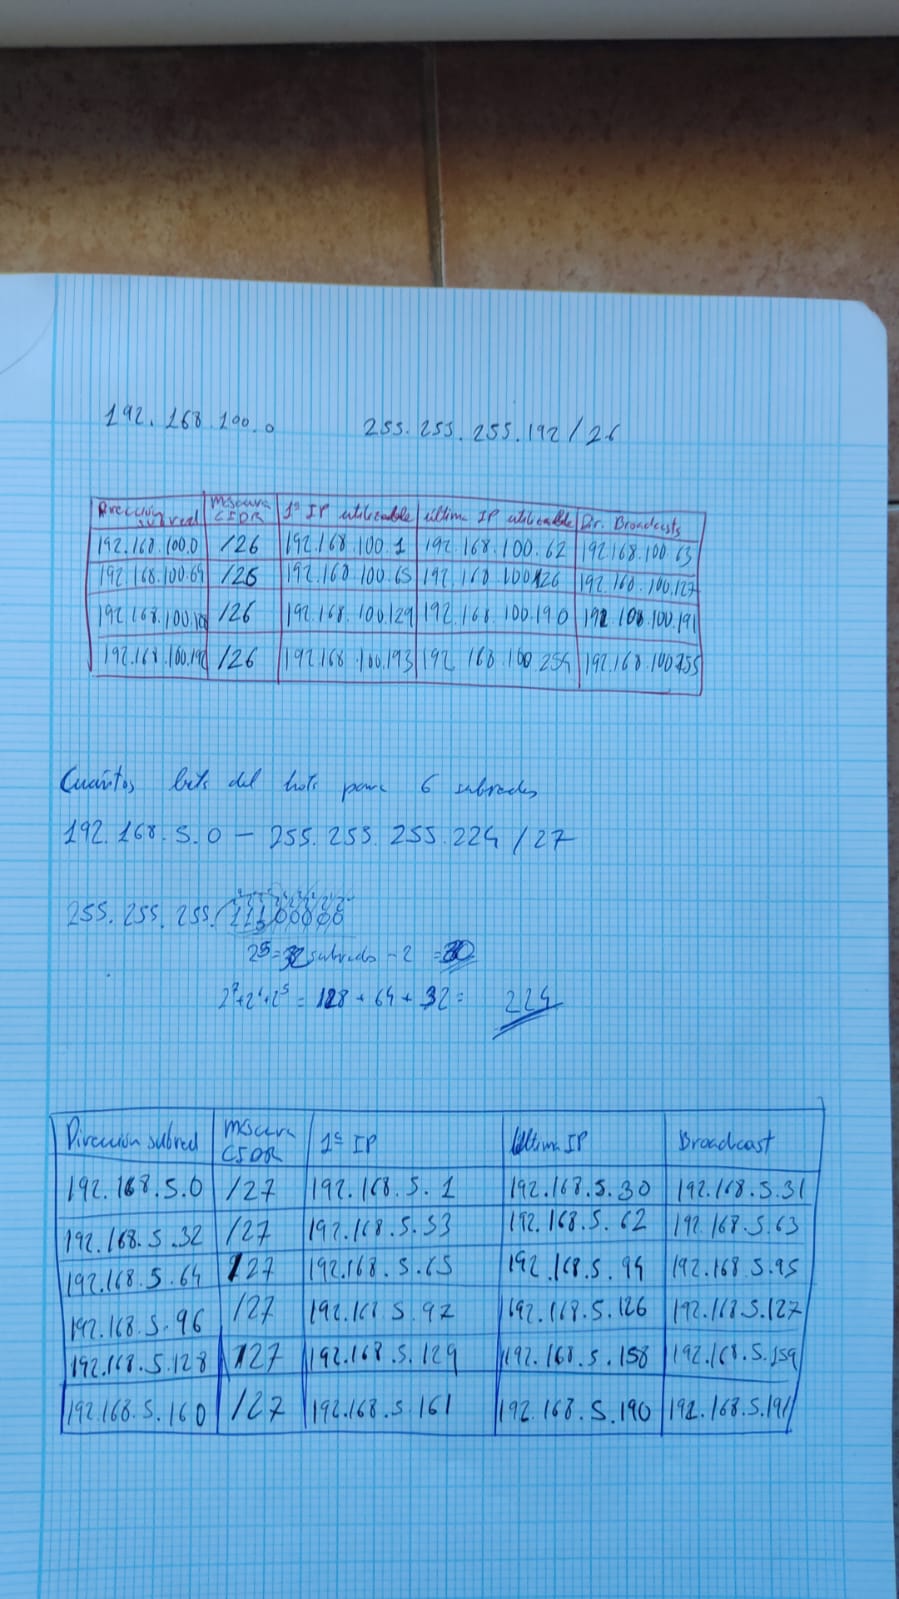 192.168.100.0 255.255.255.192/26
Dirección subred Máscara CIDR 1ª IP utilizable última IP utilizable Dir. Broadcasts
192.168.100.0 /26 192.168.100.1 192.168.100.62 192.168.100.63
192.168.100.64 /26 192.168.100.65 192.168.100.126 192.168.100.127
192.168.100. /26 192.168.100.129 192.168.100.190 192.168.100.191
192.168.100.192 /26 192.168.100.193 192.168.100.254 192.168.100.255
Cuántos bits del hots para 6 subredes
192.168.5.0 - 255.255.255.224/27
255.255.255.11100000
2⁵=32 subredes - 2 = 30
2⁷+2⁶+2⁵ = 128 + 64 + 32 = 224
Dirección subred Máscara CIDR 1ª IP Ultima IP Broadcast
192.168.5.0 /27 192.168.5.1 192.168.5.30 192.168.5.31
192.168.5.32 /27 192.168.5.33 192.168.5.62 192.168.5.63
192.168.5.64 /27 192.168.5.65 192.168.5.94 192.168.5.95
192.168.5.96 /27 192.168.5.97 192.168.5.126 192.168.5.127
192.168.5.128 /27 192.168.5.129 192.168.5.158 192.168.5.159
192.168.5.160 /27 192.168.5.161 192.168.5.190 192.168.5.191